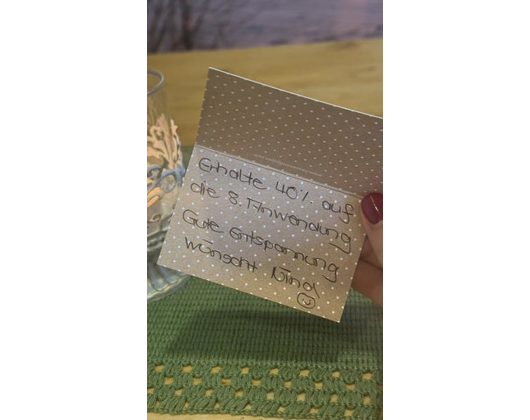 Erhalte 40% auf
die 8. Anwendung
Gute Entspannung
wünscht Nina